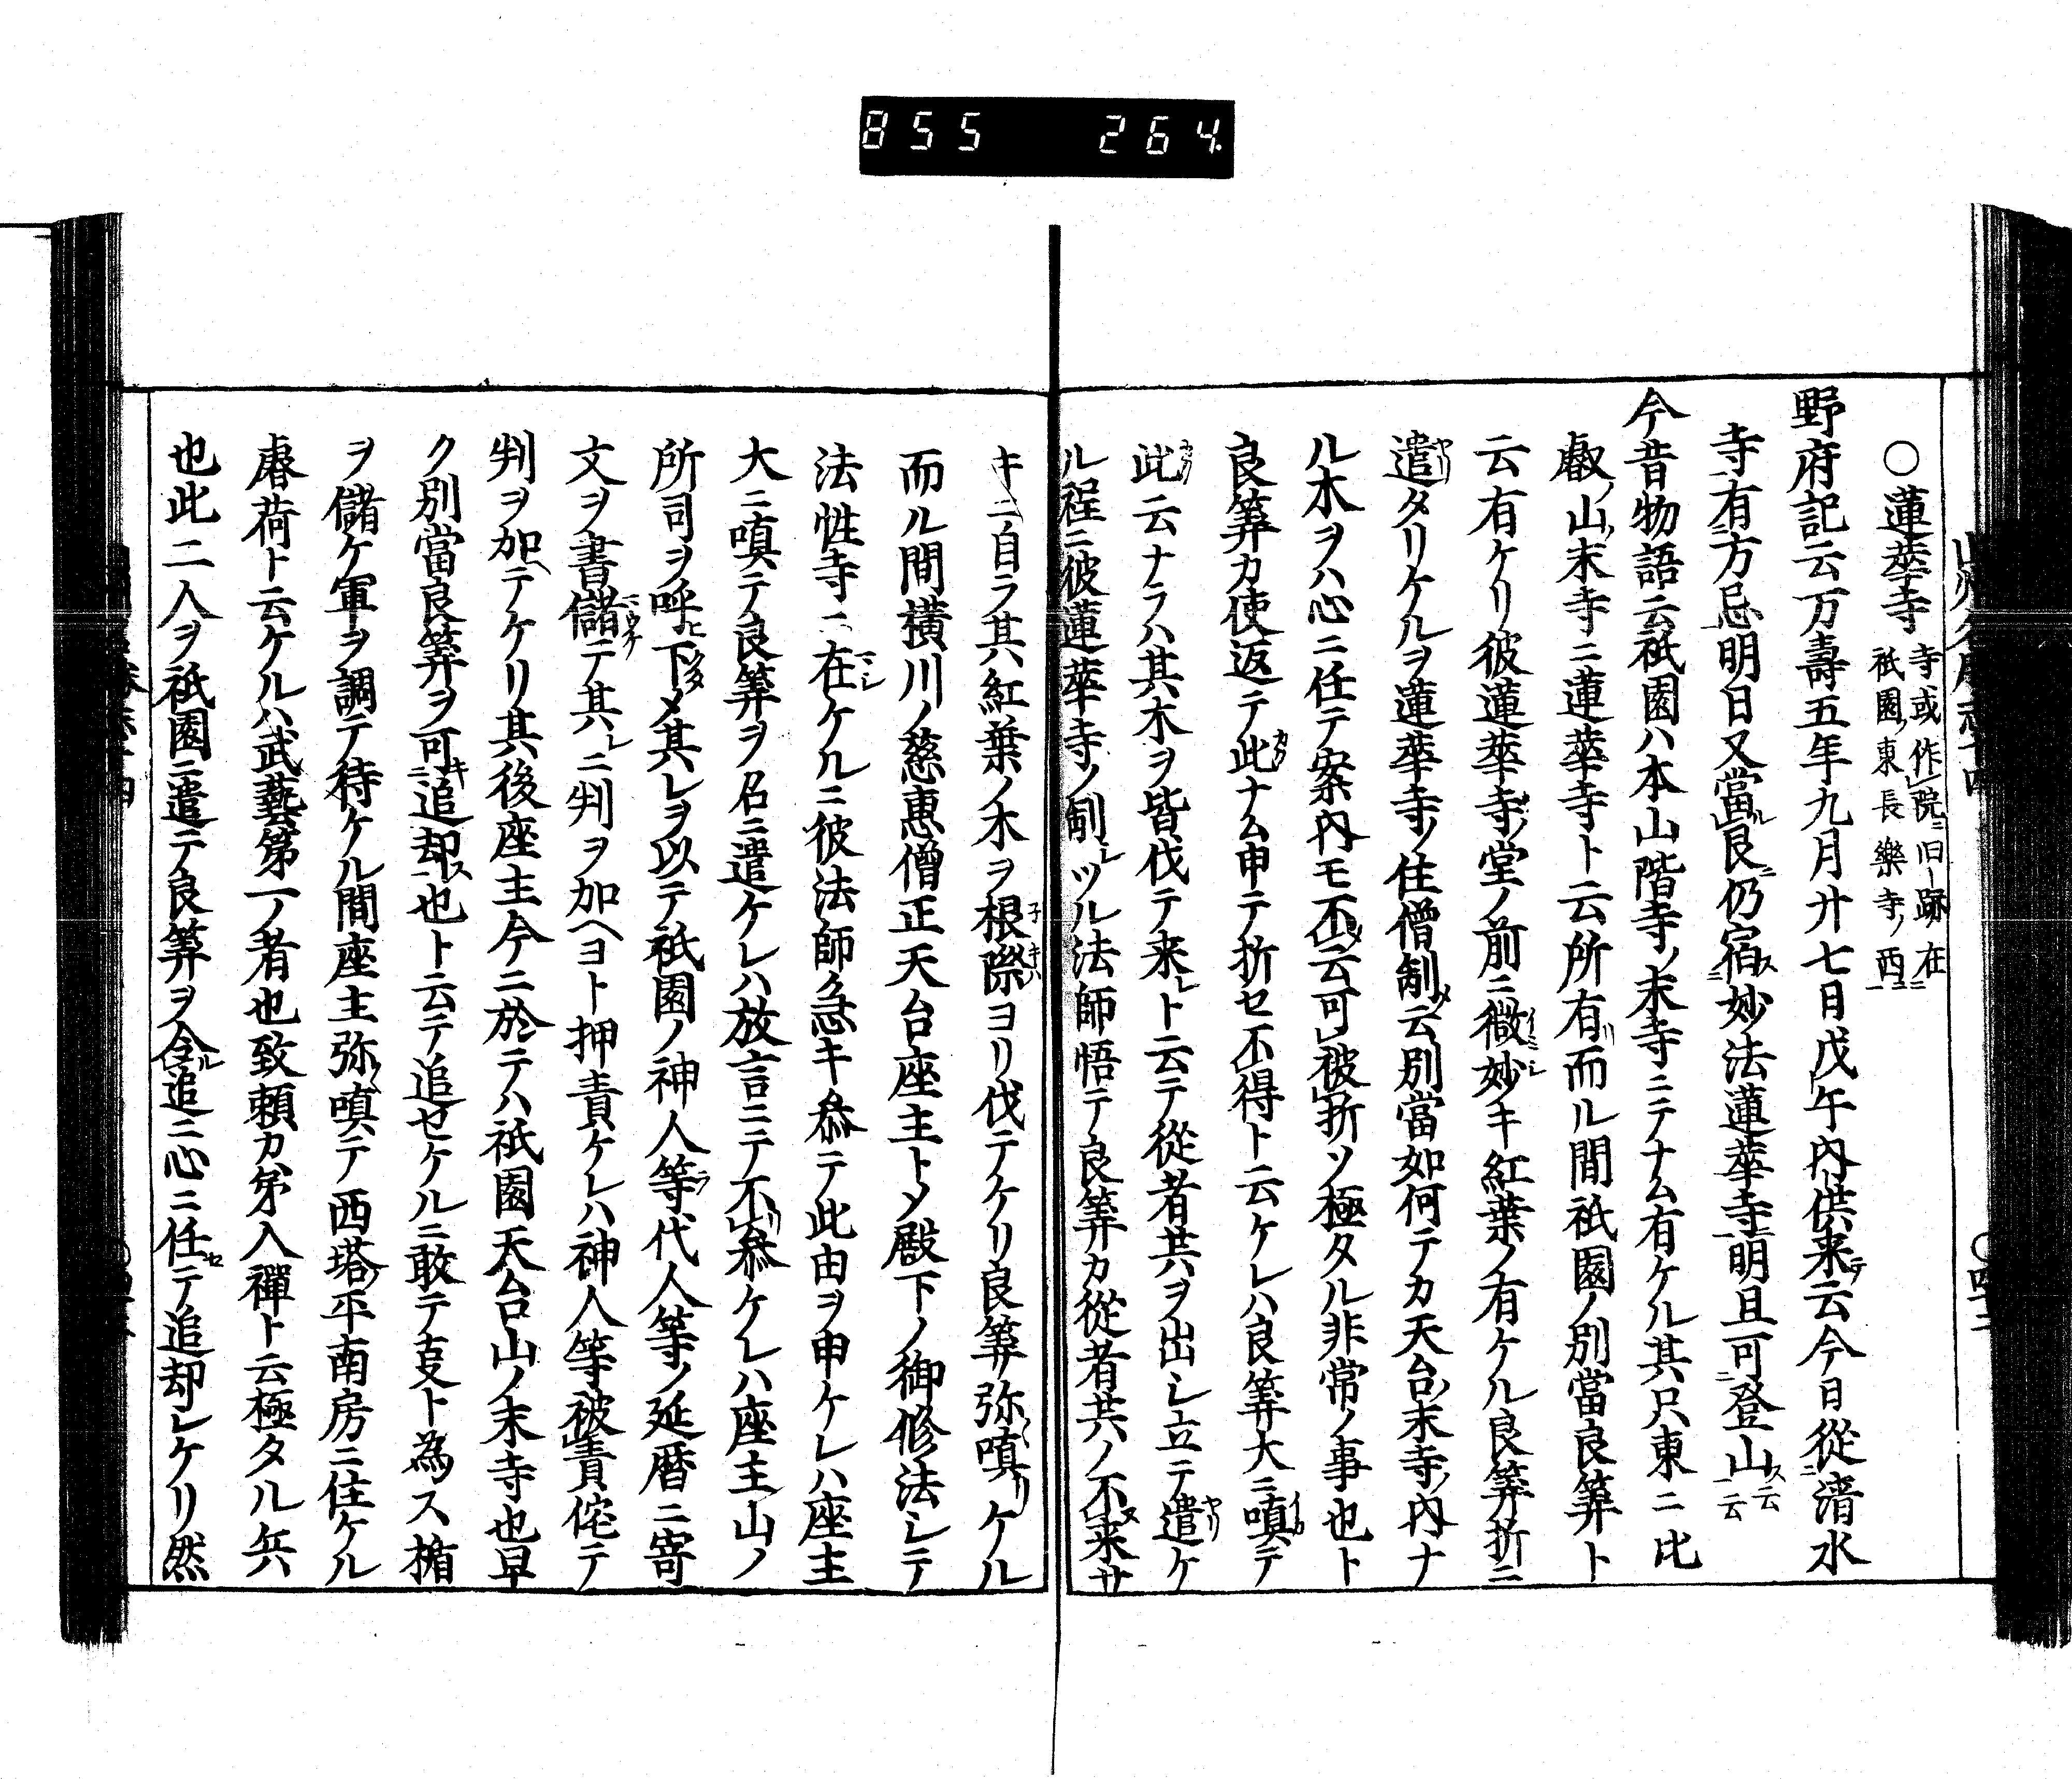 855 264
○蓮華寺 寺或作院旧跡在
祇園東長樂寺西
野府記云万壽五年九月廿七日戊午内供来云今日從清水
寺有方忌明日又當艮仍宿妙法蓮華寺明旦可登山云云
今昔物語云祇園ハ本山階寺ノ末寺ニテナム有ケル其只東ニ比
叡ノ山ノ末寺ニ蓮華寺ト云所有リ而ル間祇園ノ別當良筭ト
云有ケリ彼蓮華寺ノ堂ノ前ニ微妙キ紅葉ノ有ケル良筭折ニ
遣タリケルヲ蓮華寺ノ住僧制メ云別當如何テカ天台ノ末寺ノ内ナ
ル木ヲハ心ニ任テ案内モ不云可被折ソ極タル非常ノ事也ト
良筭カ使返テ此ナム申テ折セ不得ト云ケレハ良筭大ニ嗔テ
此云ナラハ其木ヲ皆伐テ来レト云テ從者共ヲ出シ立テ遣ケ
ル程ニ彼蓮華寺ノ制レツル法師悟テ良筭カ從者共ノ不来サ
キニ自ラ其紅葉ノ木ヲ根際ヨリ伐テケリ良筭弥嗔リケル
而ル間横川ノ慈恵僧正天台座主トメ殿下ノ御修法シテ
法性寺ニ在ケルニ彼法師急キ参テ此由ヲ申ケレハ座主
大ニ嗔テ良筭ヲ召ニ遣ケレハ放言ニテ不参ケレハ座主山ノ
所司ヲ呼ヒ下メ其レヲ以テ祇園ノ神人等代人等ノ延暦ニ寄
文ヲ書儲テ其レニ判ヲ加ヘヨト押責ケレハ神人等被責侘テ
判ヲ加テケリ其後座主今ニ於テハ祇園天台山ノ末寺也早
ク別當良筭ヲ可追却也ト云テ追セケルニ敢テ支ト為ス楯
ヲ儲ケ軍ヲ調テ待ケル間座主弥嗔テ西塔ノ平南房ニ住ケル
睿荷ト云ケルハ武藝第一ノ者也致頼カ弟入禪ト云極タル兵
也此二人ヲ祇園ニ遣テ良筭ヲ令追ニ心ニ任テ追却レケリ然